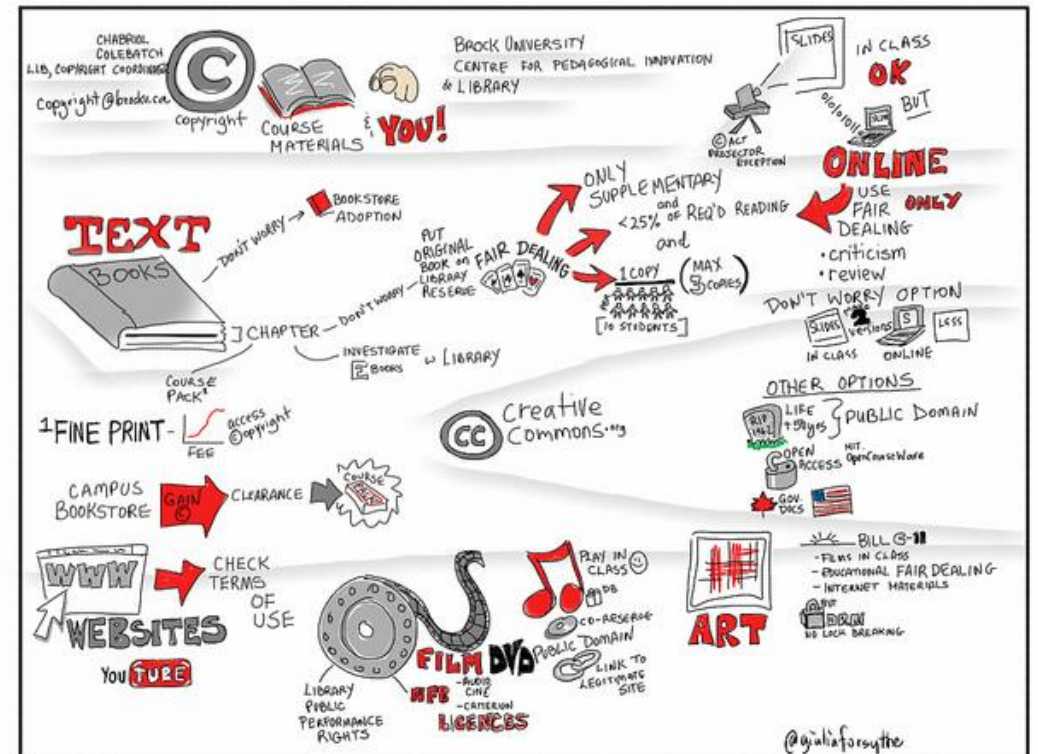 CHABRIOL
COLEBATCH
LIB, COPYRIGHT COORDINATOR
copyright@brocku.ca
C
copyright
COURSE
MATERIALS
& YOU!
BROCK UNIVERSITY
CENTRE FOR PEDAGOGICAL INNOVATION
& LIBRARY
SLIDES
IN CLASS
OK
BUT
© ACT
PROJECTOR
EXCEPTION
ONLINE
USE
FAIR ONLY
DEALING
• criticism
• review
TEXT
BOOKS
DON'T WORRY
BOOKSTORE
ADOPTION
CHAPTER
DON'T WORRY
PUT
ORIGINAL
BOOK ON
LIBRARY
RESERVE
FAIR DEALING
ONLY
SUPPLEMENTARY
and
<25% OF REQ'D READING
and
1 COPY
(MAX
3 COPIES)
[10 STUDENTS]
INVESTIGATE
E BOOKS
w LIBRARY
COURSE
PACK¹
DON'T WORRY OPTION
SLIDES
2
versions
S
LESS
IN CLASS
ONLINE
¹FINE PRINT-
FEE
access
©opyright
CC
creative
commons.org
OTHER OPTIONS
RIP
1962
LIFE
+50yrs
PUBLIC DOMAIN
OPEN
ACCESS
MIT.
OpenCourseWare
GOV.
DOCS
CAMPUS
BOOKSTORE
GAIN
©
CLEARANCE
COURSE
WWW
WEBSITES
CHECK
TERMS
OF
USE
You TUBE
LIBRARY
PUBLIC
PERFORMANCE
RIGHTS
FILM DVD
NFB
-AUDIO
CINE
-CRITERION
LICENCES
PLAY IN
CLASS
DB
CO-RESERVE
PUBLIC DOMAIN
LINK TO
LEGITIMATE
SITE
ART
BILL C-11
- FILMS IN CLASS
- EDUCATIONAL FAIR DEALING
- INTERNET MATERIALS
BUT
DRM
NO LOCK BREAKING
@giuliaforsythe